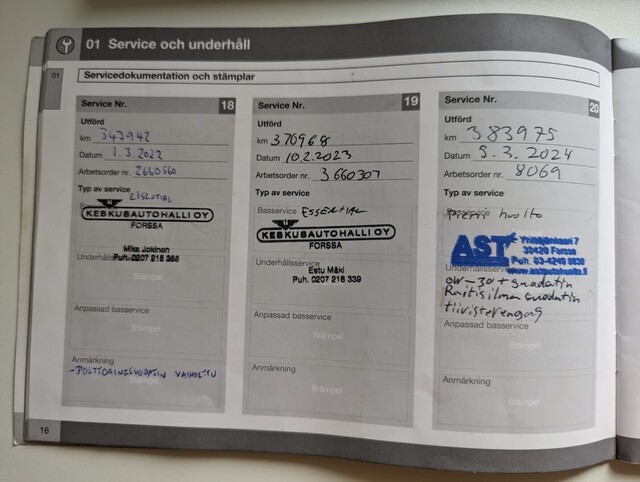 01 Service och underhåll
01
Servicedokumentation och stämplar
Service Nr. 18
Utförd
km 347942
Datum 1.3.2022
Arbetsorder nr. 2660560
Typ av service
KESKUSAUTOHALLI OY
FORSSA
Mika Jokinen
Puh. 0207 218 368
Underhållsservice
Stämpel
Anpassad basservice
Stämpel
Anmärkning
-POLTTOAINESUODATIN VAIHDETTU
Stämpel
Service Nr. 19
Utförd
km 370968
Datum 10.2.2023
Arbetsorder nr. 3660307
Typ av service
Basservice ESSENTIAL
KESKUSAUTOHALLI OY
FORSSA
Underhållsservice
Estu Mäki
Puh. 0207 218 339
Anpassad basservice
Stämpel
Anmärkning
Stämpel
Service Nr. 20
Utförd
km 383975
Datum 5.3.2024
Arbetsorder nr. 8069
Typ av service
Basservice
Pieni huolto
AST
Yrittäjänkaari 7
30420 Forssa
Underhållsservice
0W-30 + suodatin
Raitisilmasuodatin
Anpassad basservice
Stämpel
Anmärkning
Stämpel
16